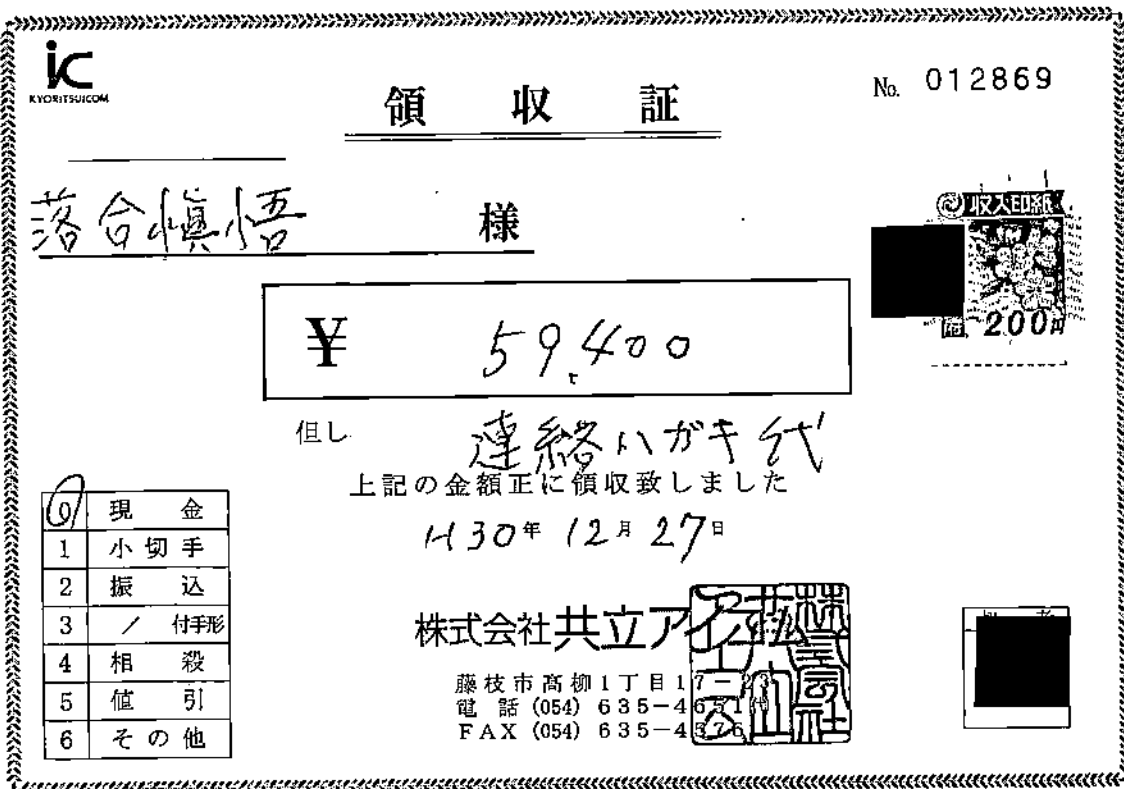 ic
KYORITSUICOM
領収証
No. 012869
落合愼悟 様
収入印紙
200円
¥ 59,400
但し 連絡ハガキ代
上記の金額正に領収致しました
H30年 12月 27日
0 現金
1 小切手
2 振込
3 / 付手形
4 相殺
5 値引
6 その他
株式会社共立アイコム
藤枝市高柳1丁目17-23
電話 (054) 635-4651
FAX (054) 635-4376